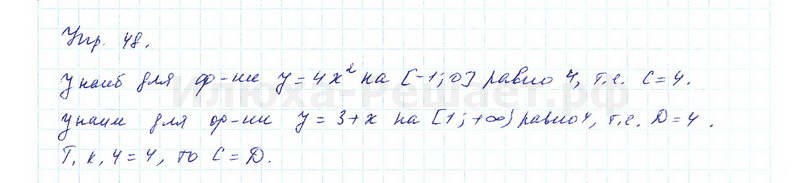 Упр. 48.
y наиб для ф-ии y = 4x² на [-1; 0] равно 4, т.е. C = 4.
y наим для ф-ии y = 3 + x на [1; +∞) равно 4, т.е. D = 4.
Т.к. 4 = 4, то C = D.
Илюха-Решает.рф